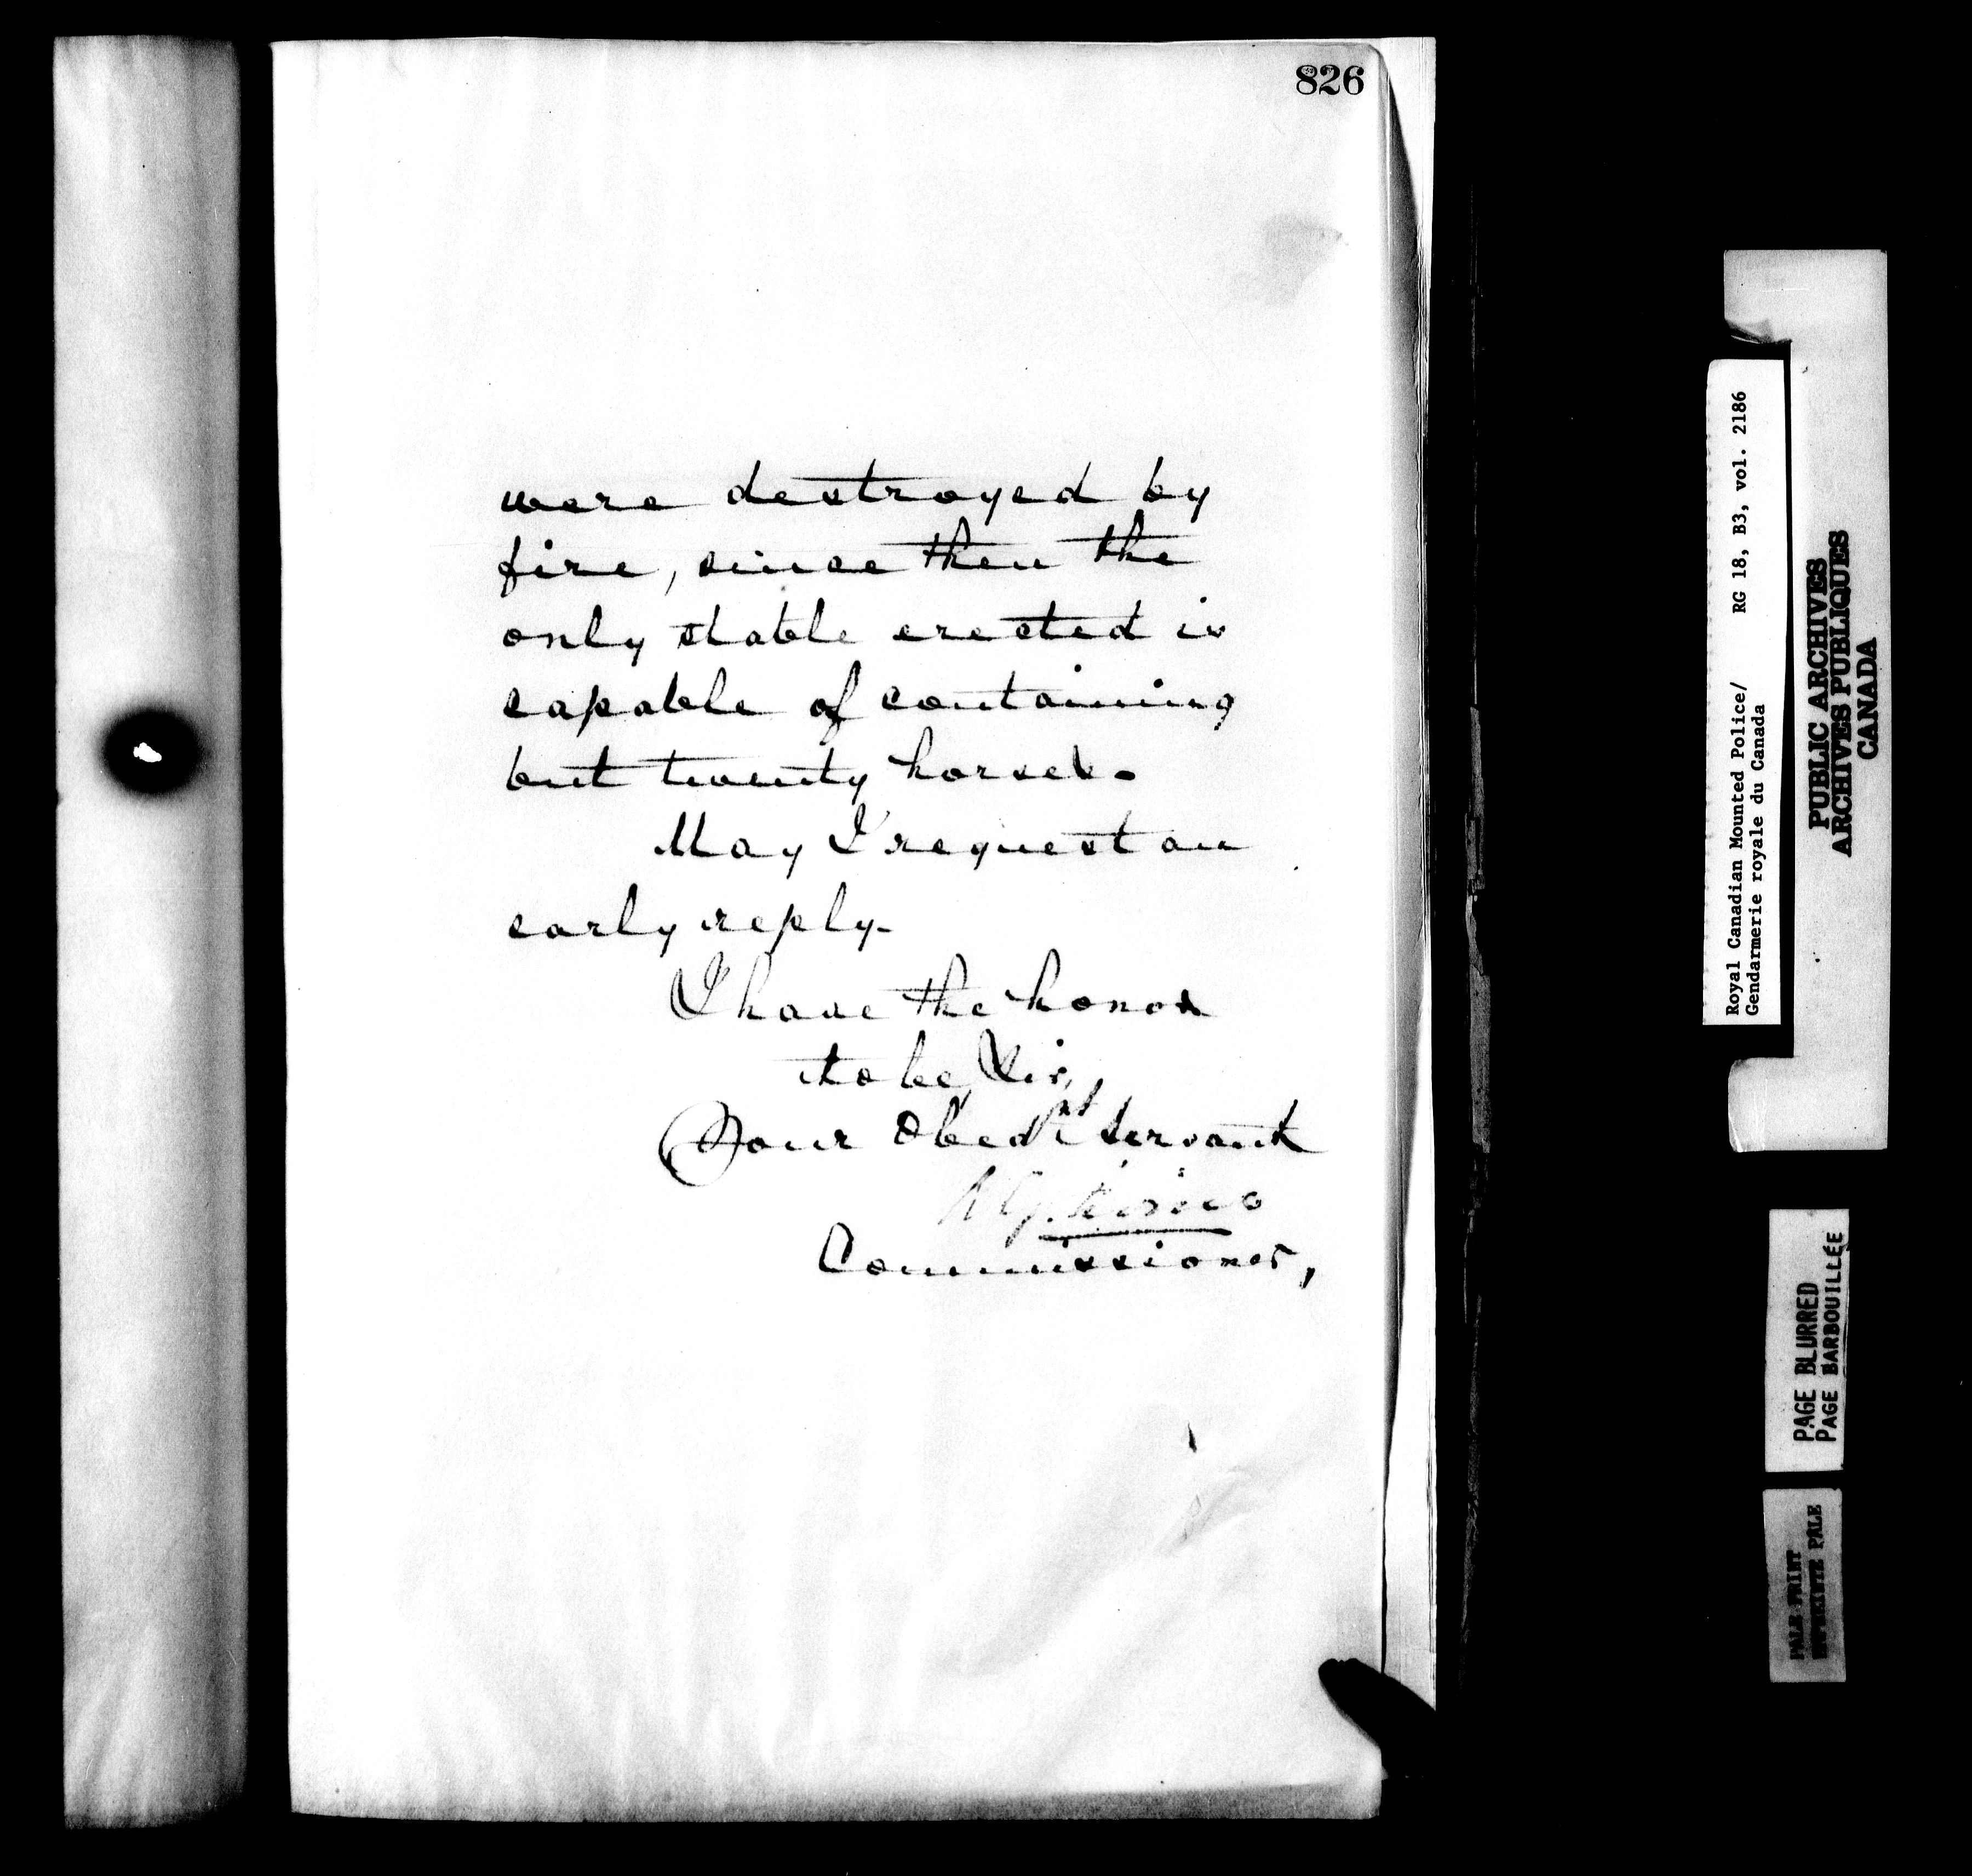 826
were destroyed by
fire, since then the
only stable erected is
capable of containing
but twenty horses.
May I request an
early reply.
I have the honor
to be, Sir,
Your Obedt Servant
Commissioner,
Royal Canadian Mounted Police/ RG 18, B3, vol. 2186
Gendarmerie royale du Canada
PUBLIC ARCHIVES
ARCHIVES PUBLIQUES
CANADA
PAGE BLURRED
PAGE BARBOUILLÉE
PALE PRINT
PALE